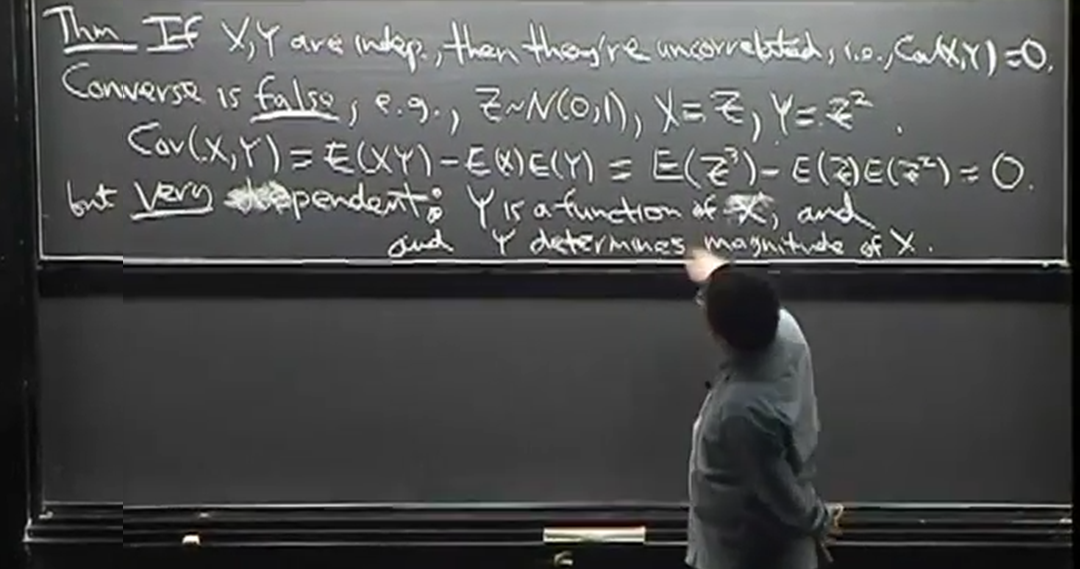 Thm If X,Y are indep., then they're uncorrelated, i.e., Cov(X,Y)=0.
Converse is false, e.g., Z~N(0,1), X=Z, Y=Z².
Cov(X,Y) = E(XY) - E(X)E(Y) = E(Z³) - E(Z)E(Z²) = 0.
but very dependent: Y is a function of X, and
and Y determines magnitude of X.